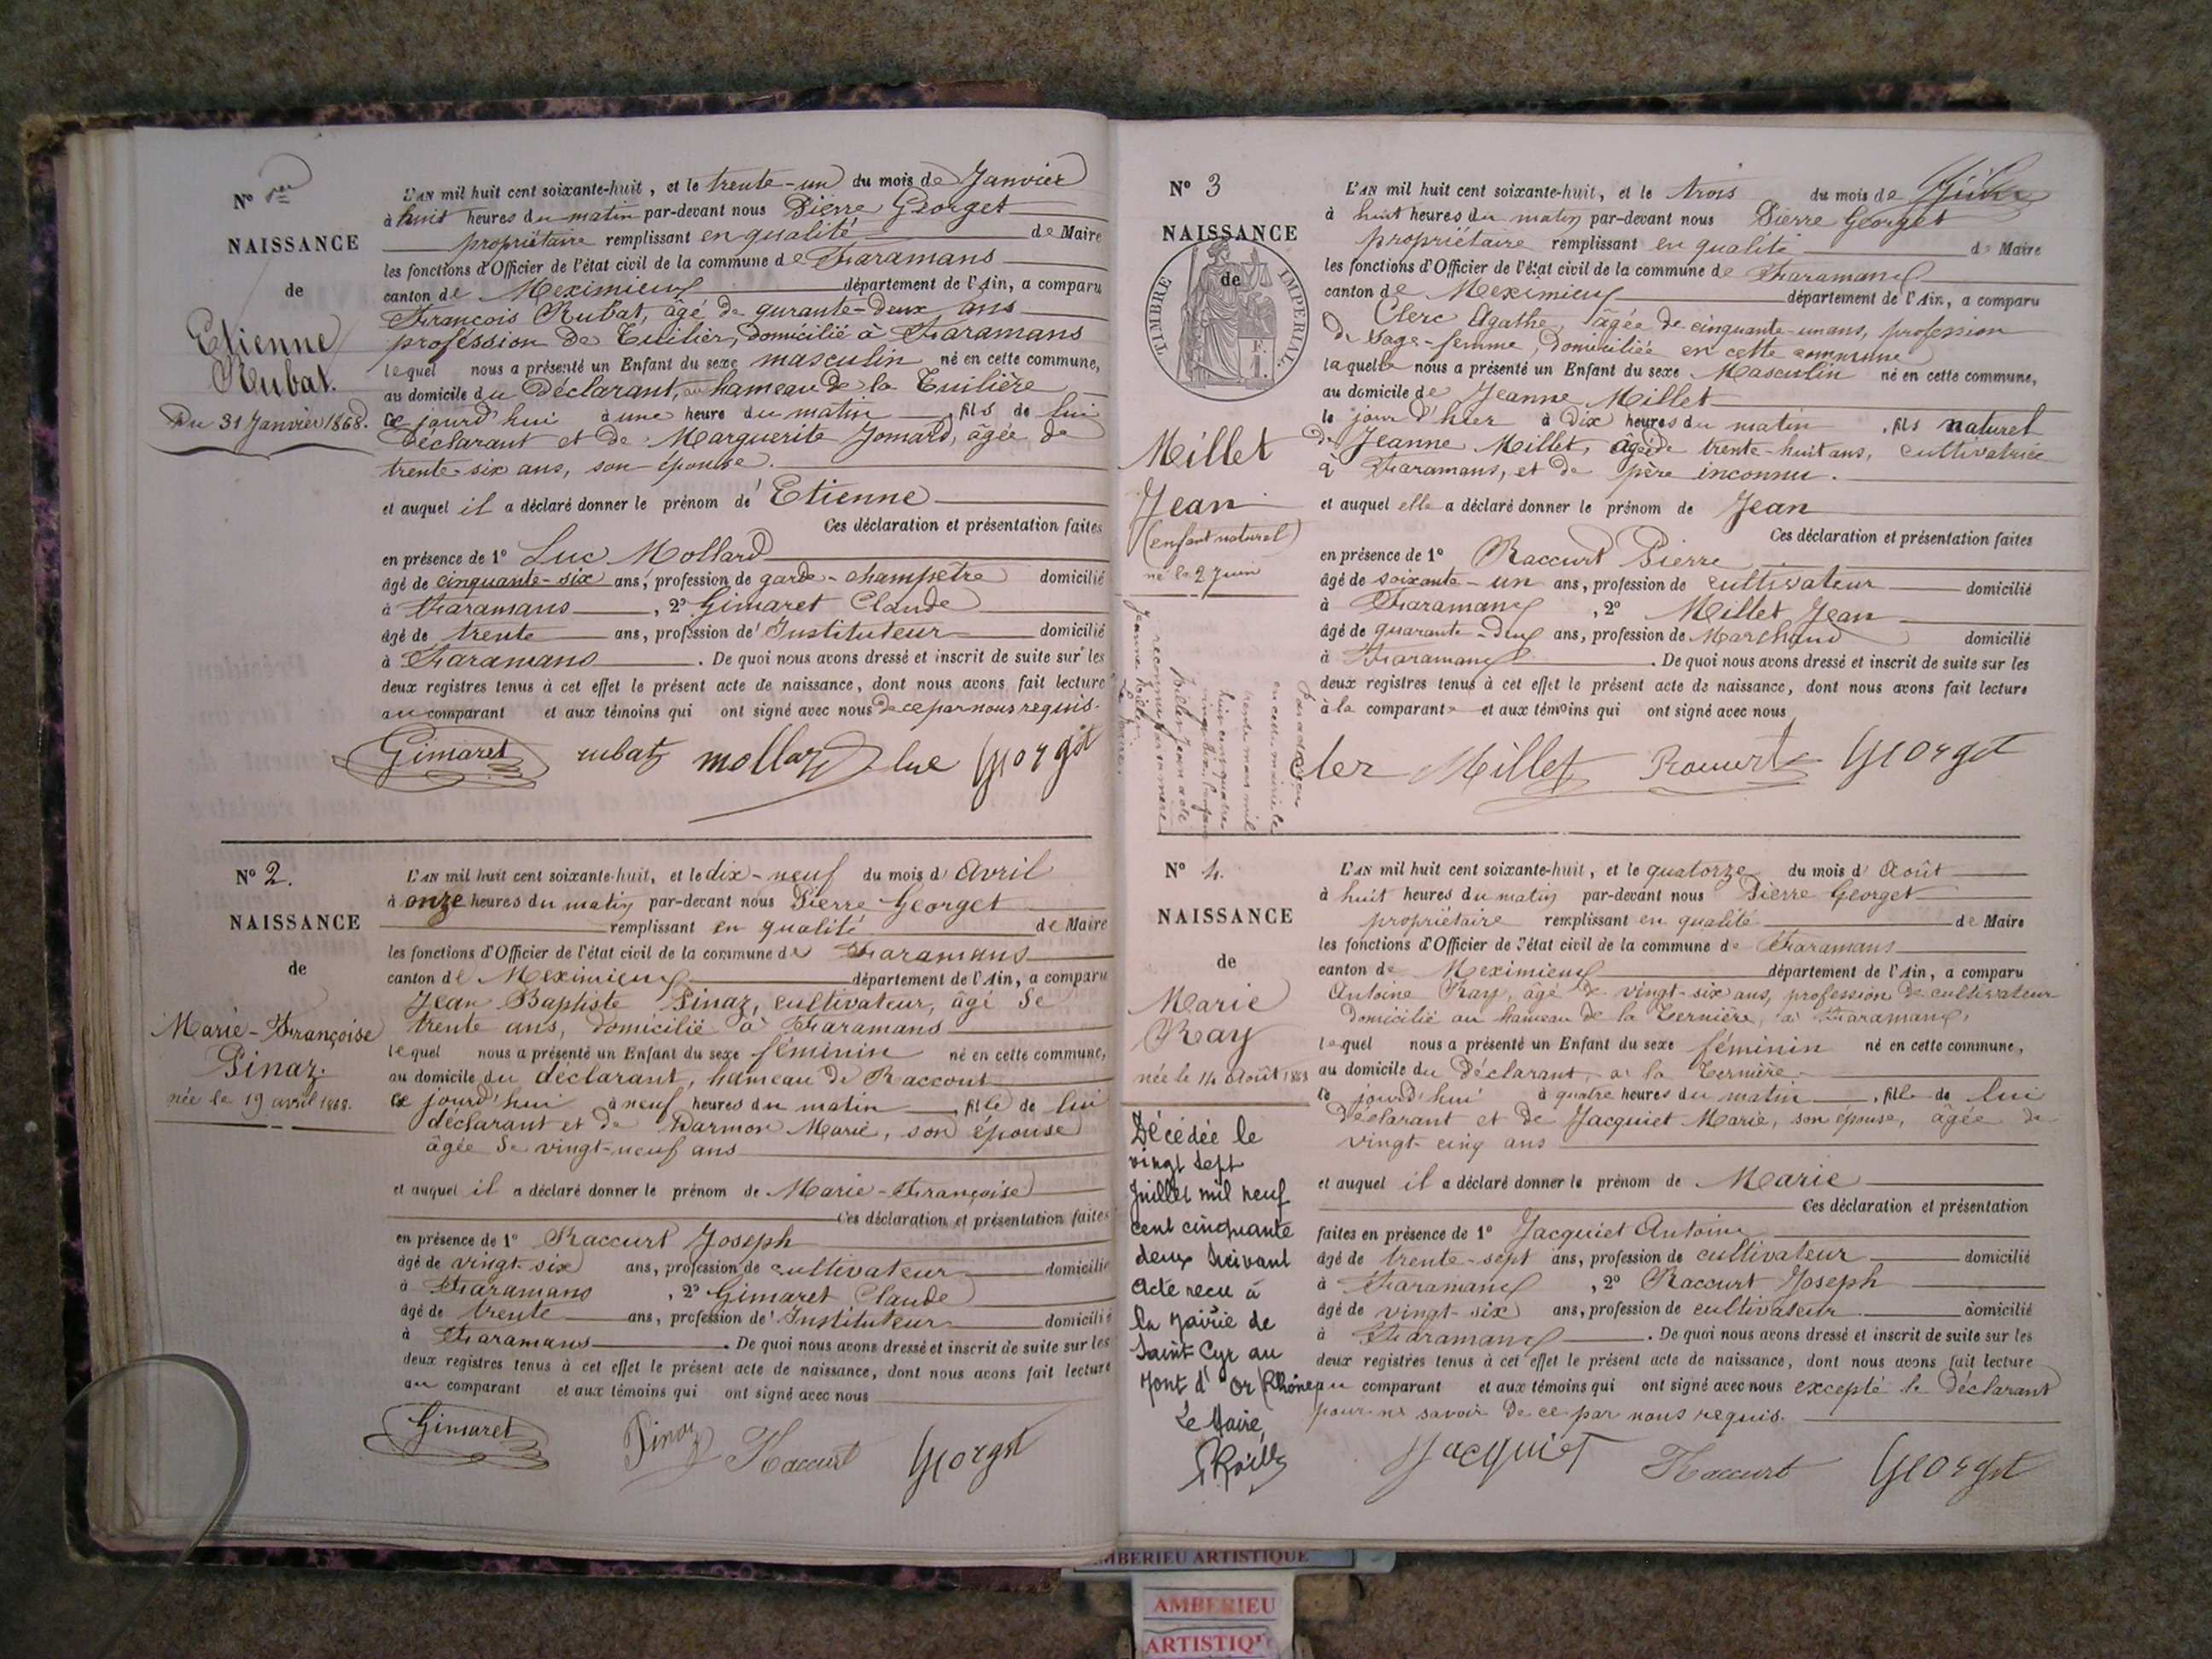 N° 1er
NAISSANCE
de
Etienne
Rubat.
Du 31 Janvier 1868.
L'AN mil huit cent soixante-huit, et le trente-un du mois de Janvier
à huit heures du matin par-devant nous Pierre Georget
propriétaire remplissant en qualité de Maire
les fonctions d'Officier de l'état civil de la commune de Faramans
canton de Meximieux département de l'Ain, a comparu
François Rubat, âgé de qurante-deux ans
proféssion de Tuilier, domicilié à Faramans
lequel nous a présenté un Enfant du sexe masculin né en cette commune,
au domicile du Déclarant, au hameau de la Tuilière
ce jourd'hui à une heure du matin, fils de lui
Déclarant et de Marguerite Jomard, âgée de
trente-six ans, son épouse.
et auquel il a déclaré donner le prénom de Etienne
Ces déclaration et présentation faites
en présence de 1° Luc Mollard
âgé de cinquante-six ans, profession de garde-champetre domicilié
à Faramans, 2° Gimaret Claude
âgé de trente ans, profession de Instituteur domicilié
à Faramans. De quoi nous avons dressé et inscrit de suite sur les
deux registres tenus à cet effet le présent acte de naissance, dont nous avons fait lecture
au comparant et aux témoins qui ont signé avec nous de ce par nous requis.
Gimaret rubat mollard luc Georget
N° 2.
NAISSANCE
de
Marie-Françoise
Pinaz.
née le 19 avril 1868.
L'AN mil huit cent soixante-huit, et le dix-neuf du mois d'Avril
à onze heures du matin par-devant nous Pierre Georget
remplissant en qualité de Maire
les fonctions d'Officier de l'état civil de la commune de Faramans
canton de Meximieux département de l'Ain, a comparu
Jean Baptiste Pinaz, cultivateur, âgé de
trente ans, domicilié à Faramans
lequel nous a présenté un Enfant du sexe féminin né en cette commune,
au domicile du déclarant, hameau de Raccout
ce jourd'hui à neuf heures du matin, fille de lui
déclarant et de Darmon Marie, son épouse
âgée de vingt-neuf ans
et auquel il a déclaré donner le prénom de Marie-Françoise
Ces déclaration et présentation faites
en présence de 1° Raccurt Joseph
âgé de vingt-six ans, profession de cultivateur domicilié
à Faramans, 2° Gimaret Claude
âgé de trente ans, profession de Instituteur domicilié
à Faramans. De quoi nous avons dressé et inscrit de suite sur les
deux registres tenus à cet effet le présent acte de naissance, dont nous avons fait lecture
au comparant et aux témoins qui ont signé avec nous
Gimaret Pinaz Raccurt Georget
N° 3
NAISSANCE
de
TIMBRE IMPERIAL.
F.
1.
Millet
Jean
(enfant naturel)
né le 2 Juin
Par acte reçu
en cette mairie le
trente mars mil
huit cent quatre
vingt l'enfant
Millet Jean a été
reconnu par sa mère
Jeanne Millet.
Le Maire.
L'AN mil huit cent soixante-huit, et le trois du mois de Juin
à huit heures du matin par-devant nous Pierre Georget
propriétaire remplissant en qualité de Maire
les fonctions d'Officier de l'état civil de la commune de Faramans
canton de Meximieux département de l'Ain, a comparu
Clerc Agathe, âgée de cinquante-un ans, profession
de sage-femme, domiciliée en cette commune
laquelle nous a présenté un Enfant du sexe Masculin né en cette commune,
au domicile de Jeanne Millet
le jour d'hier à dix heures du matin, fils naturel
de Jeanne Millet, âgée de trente-huit ans, cultivatrice
à Faramans, et de père inconnu.
et auquel elle a déclaré donner le prénom de Jean
Ces déclaration et présentation faites
en présence de 1° Raccurt Pierre
âgé de soixante-un ans, profession de cultivateur domicilié
à Faramans, 2° Millet Jean
âgé de quarante-deux ans, profession de Marchand domicilié
à Faramans. De quoi nous avons dressé et inscrit de suite sur les
deux registres tenus à cet effet le présent acte de naissance, dont nous avons fait lecture
à la comparante et aux témoins qui ont signé avec nous
cler Millet Raccurt Georget
N° 4.
NAISSANCE
de
Marie
Ray
née le 14 Août 1868
Décédée le
vingt sept
Juillet mil neuf
cent cinquante
deux suivant
acte reçu à
la Mairie de
Saint Cyr au
Mont d'Or (Rhône)
Le Maire,
L'AN mil huit cent soixante-huit, et le quatorze du mois d'Août
à huit heures du matin par-devant nous Pierre Georget
propriétaire remplissant en qualité de Maire
les fonctions d'Officier de l'état civil de la commune de Faramans
canton de Meximieux département de l'Ain, a comparu
Antoine Ray, âgé de vingt-six ans, profession de cultivateur
domicilié au hameau de la Ternière, à Faramans,
lequel nous a présenté un Enfant du sexe féminin né en cette commune,
au domicile du Déclarant, à la Ternière
ce jourd'hui à quatre heures du matin, fille de lui
déclarant et de Jacquiet Marie, son épouse, âgée de
vingt-cinq ans
et auquel il a déclaré donner le prénom de Marie
Ces déclaration et présentation
faites en présence de 1° Jacquiet Antoine
âgé de trente-sept ans, profession de cultivateur domicilié
à Faramans, 2° Raccurt Joseph
âgé de vingt-six ans, profession de cultivateur domicilié
à Faramans. De quoi nous avons dressé et inscrit de suite sur les
deux registres tenus à cet effet le présent acte de naissance, dont nous avons fait lecture
au comparant et aux témoins qui ont signé avec nous excepté le Déclarant
pour ne savoir de ce par nous requis.
Jacquiet Raccurt Georget
AMBERIEU ARTISTIQUE
AMBERIEU
ARTISTIQU